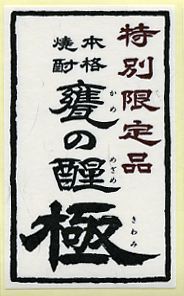 特別限定品
本格
焼酎
甕の醒
かめ
めざめ
極
きわみ